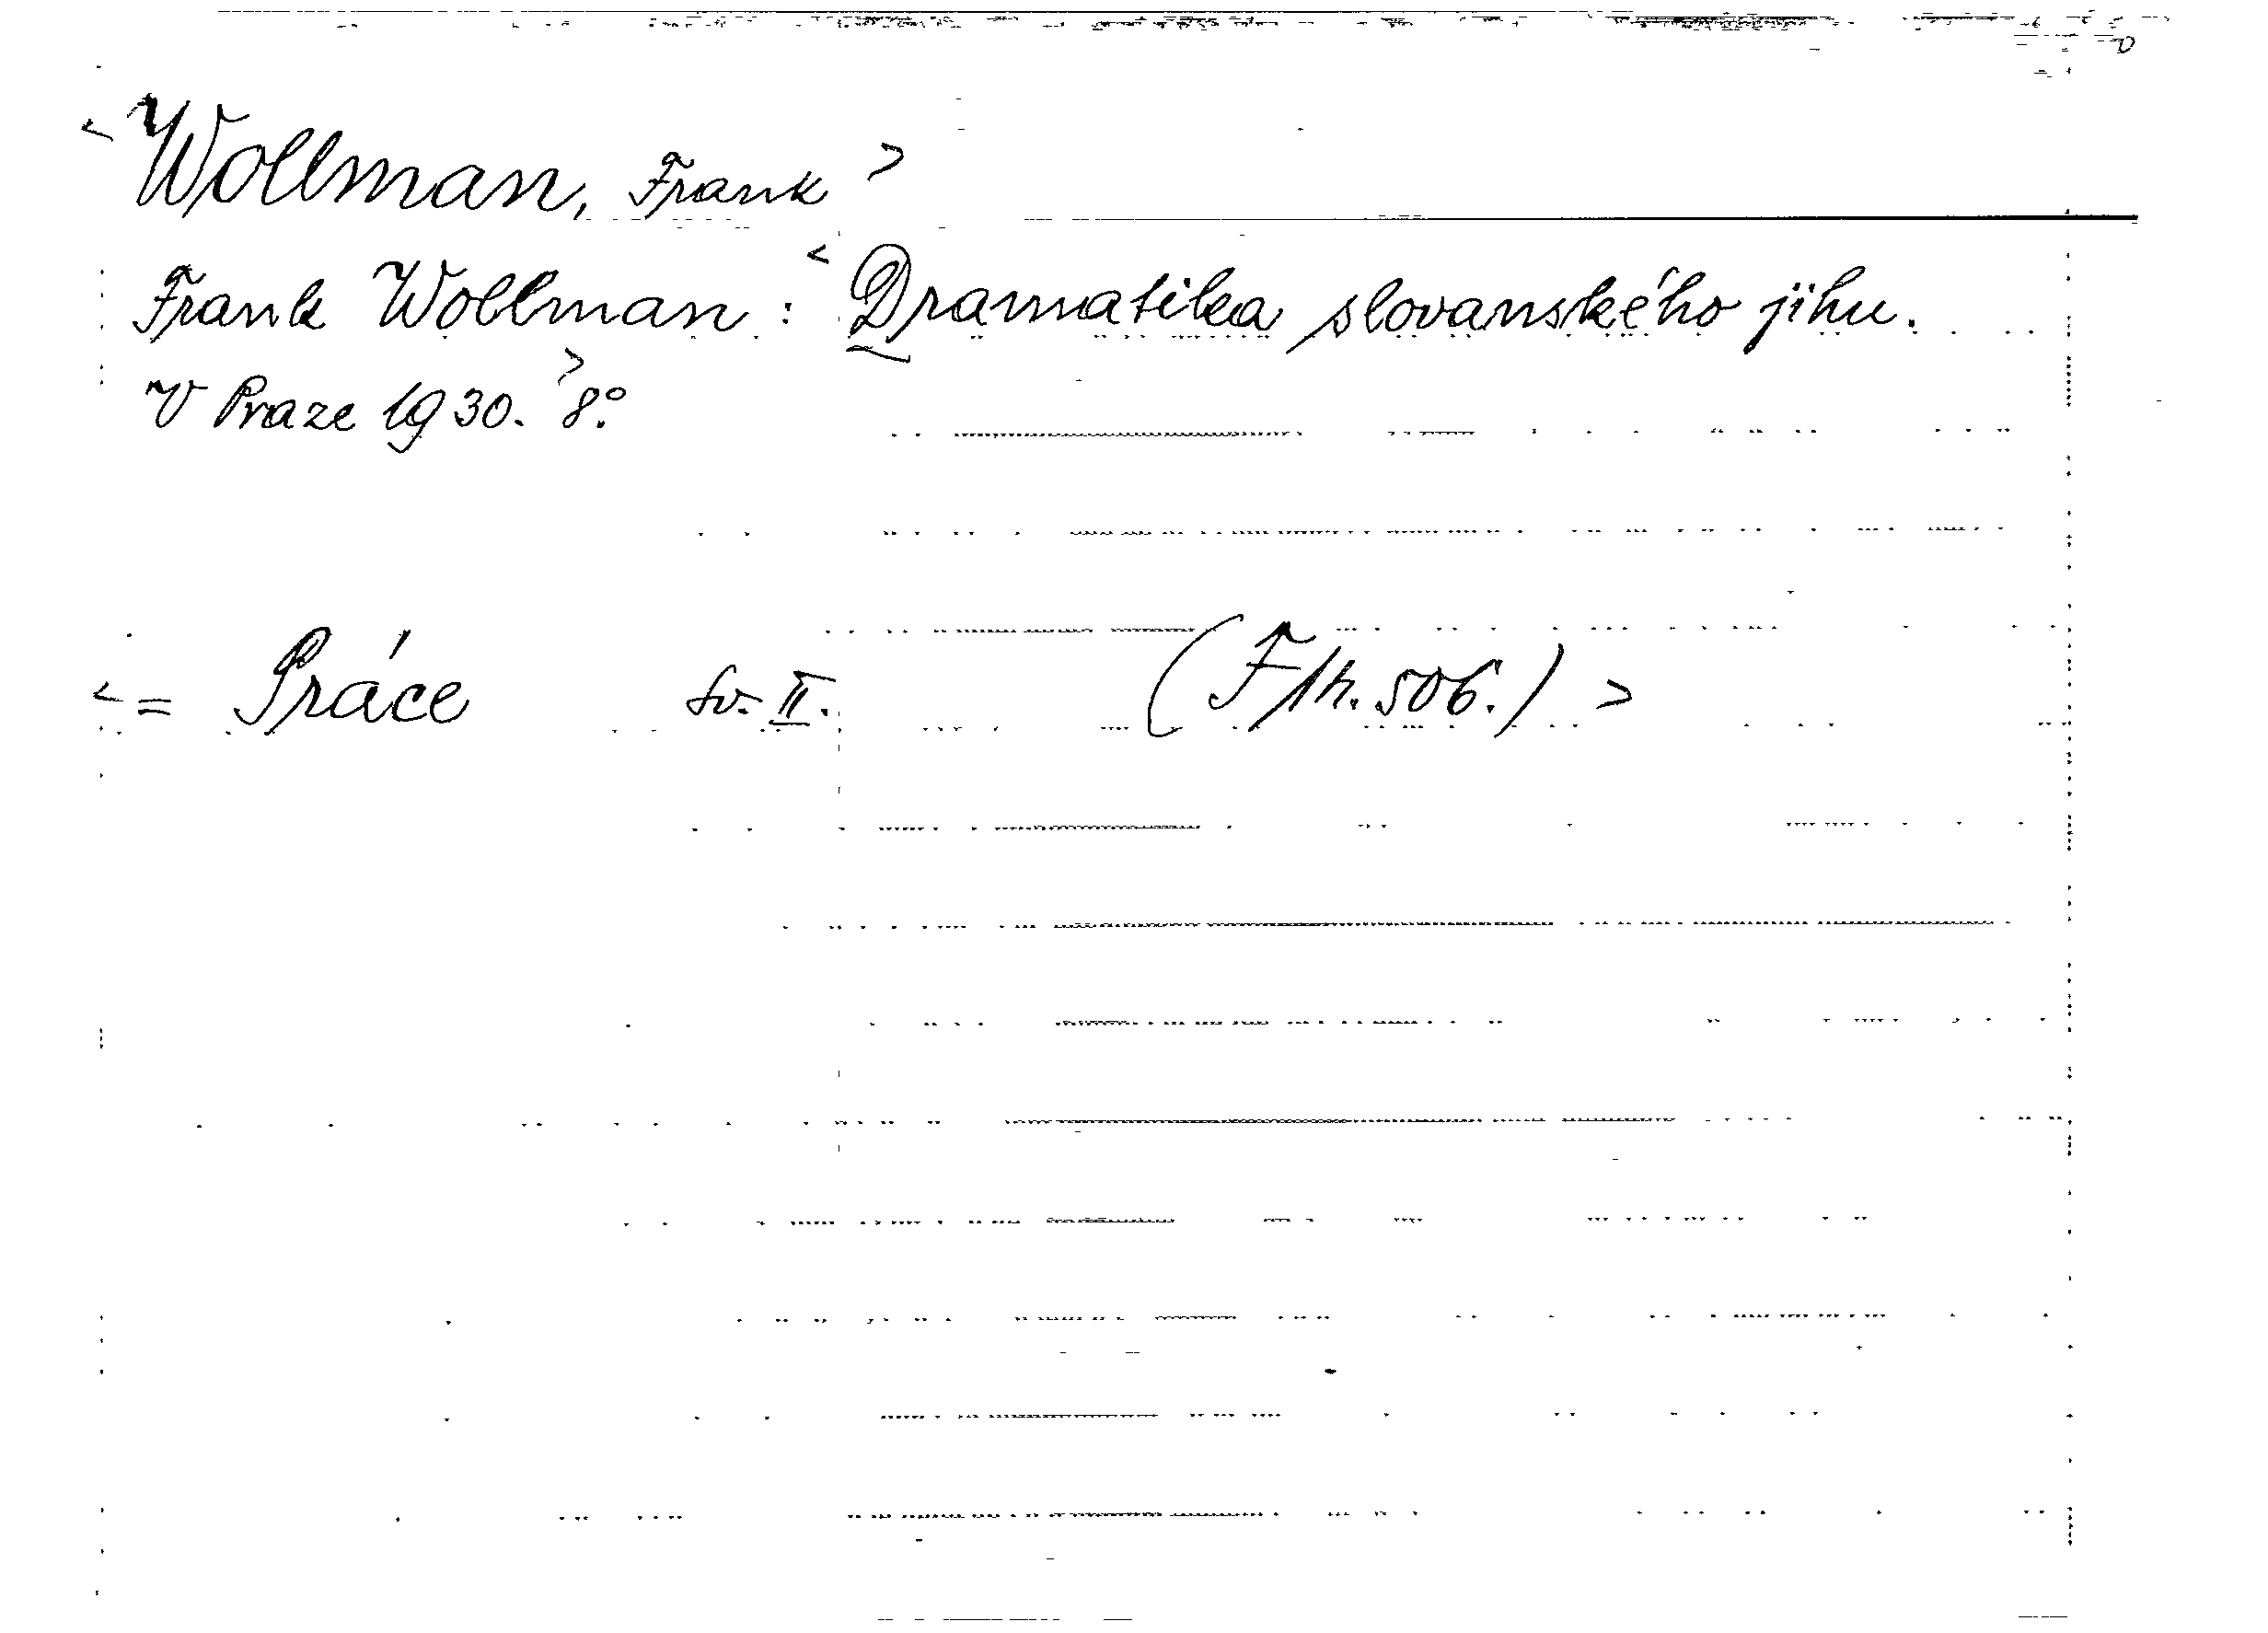 < Wollman, Frank >
Frank Wollman: < Dramatika slovanského jihu.
V Praze 1930. > 8°.
< = Práce sv. II. (F/h. 506.) >